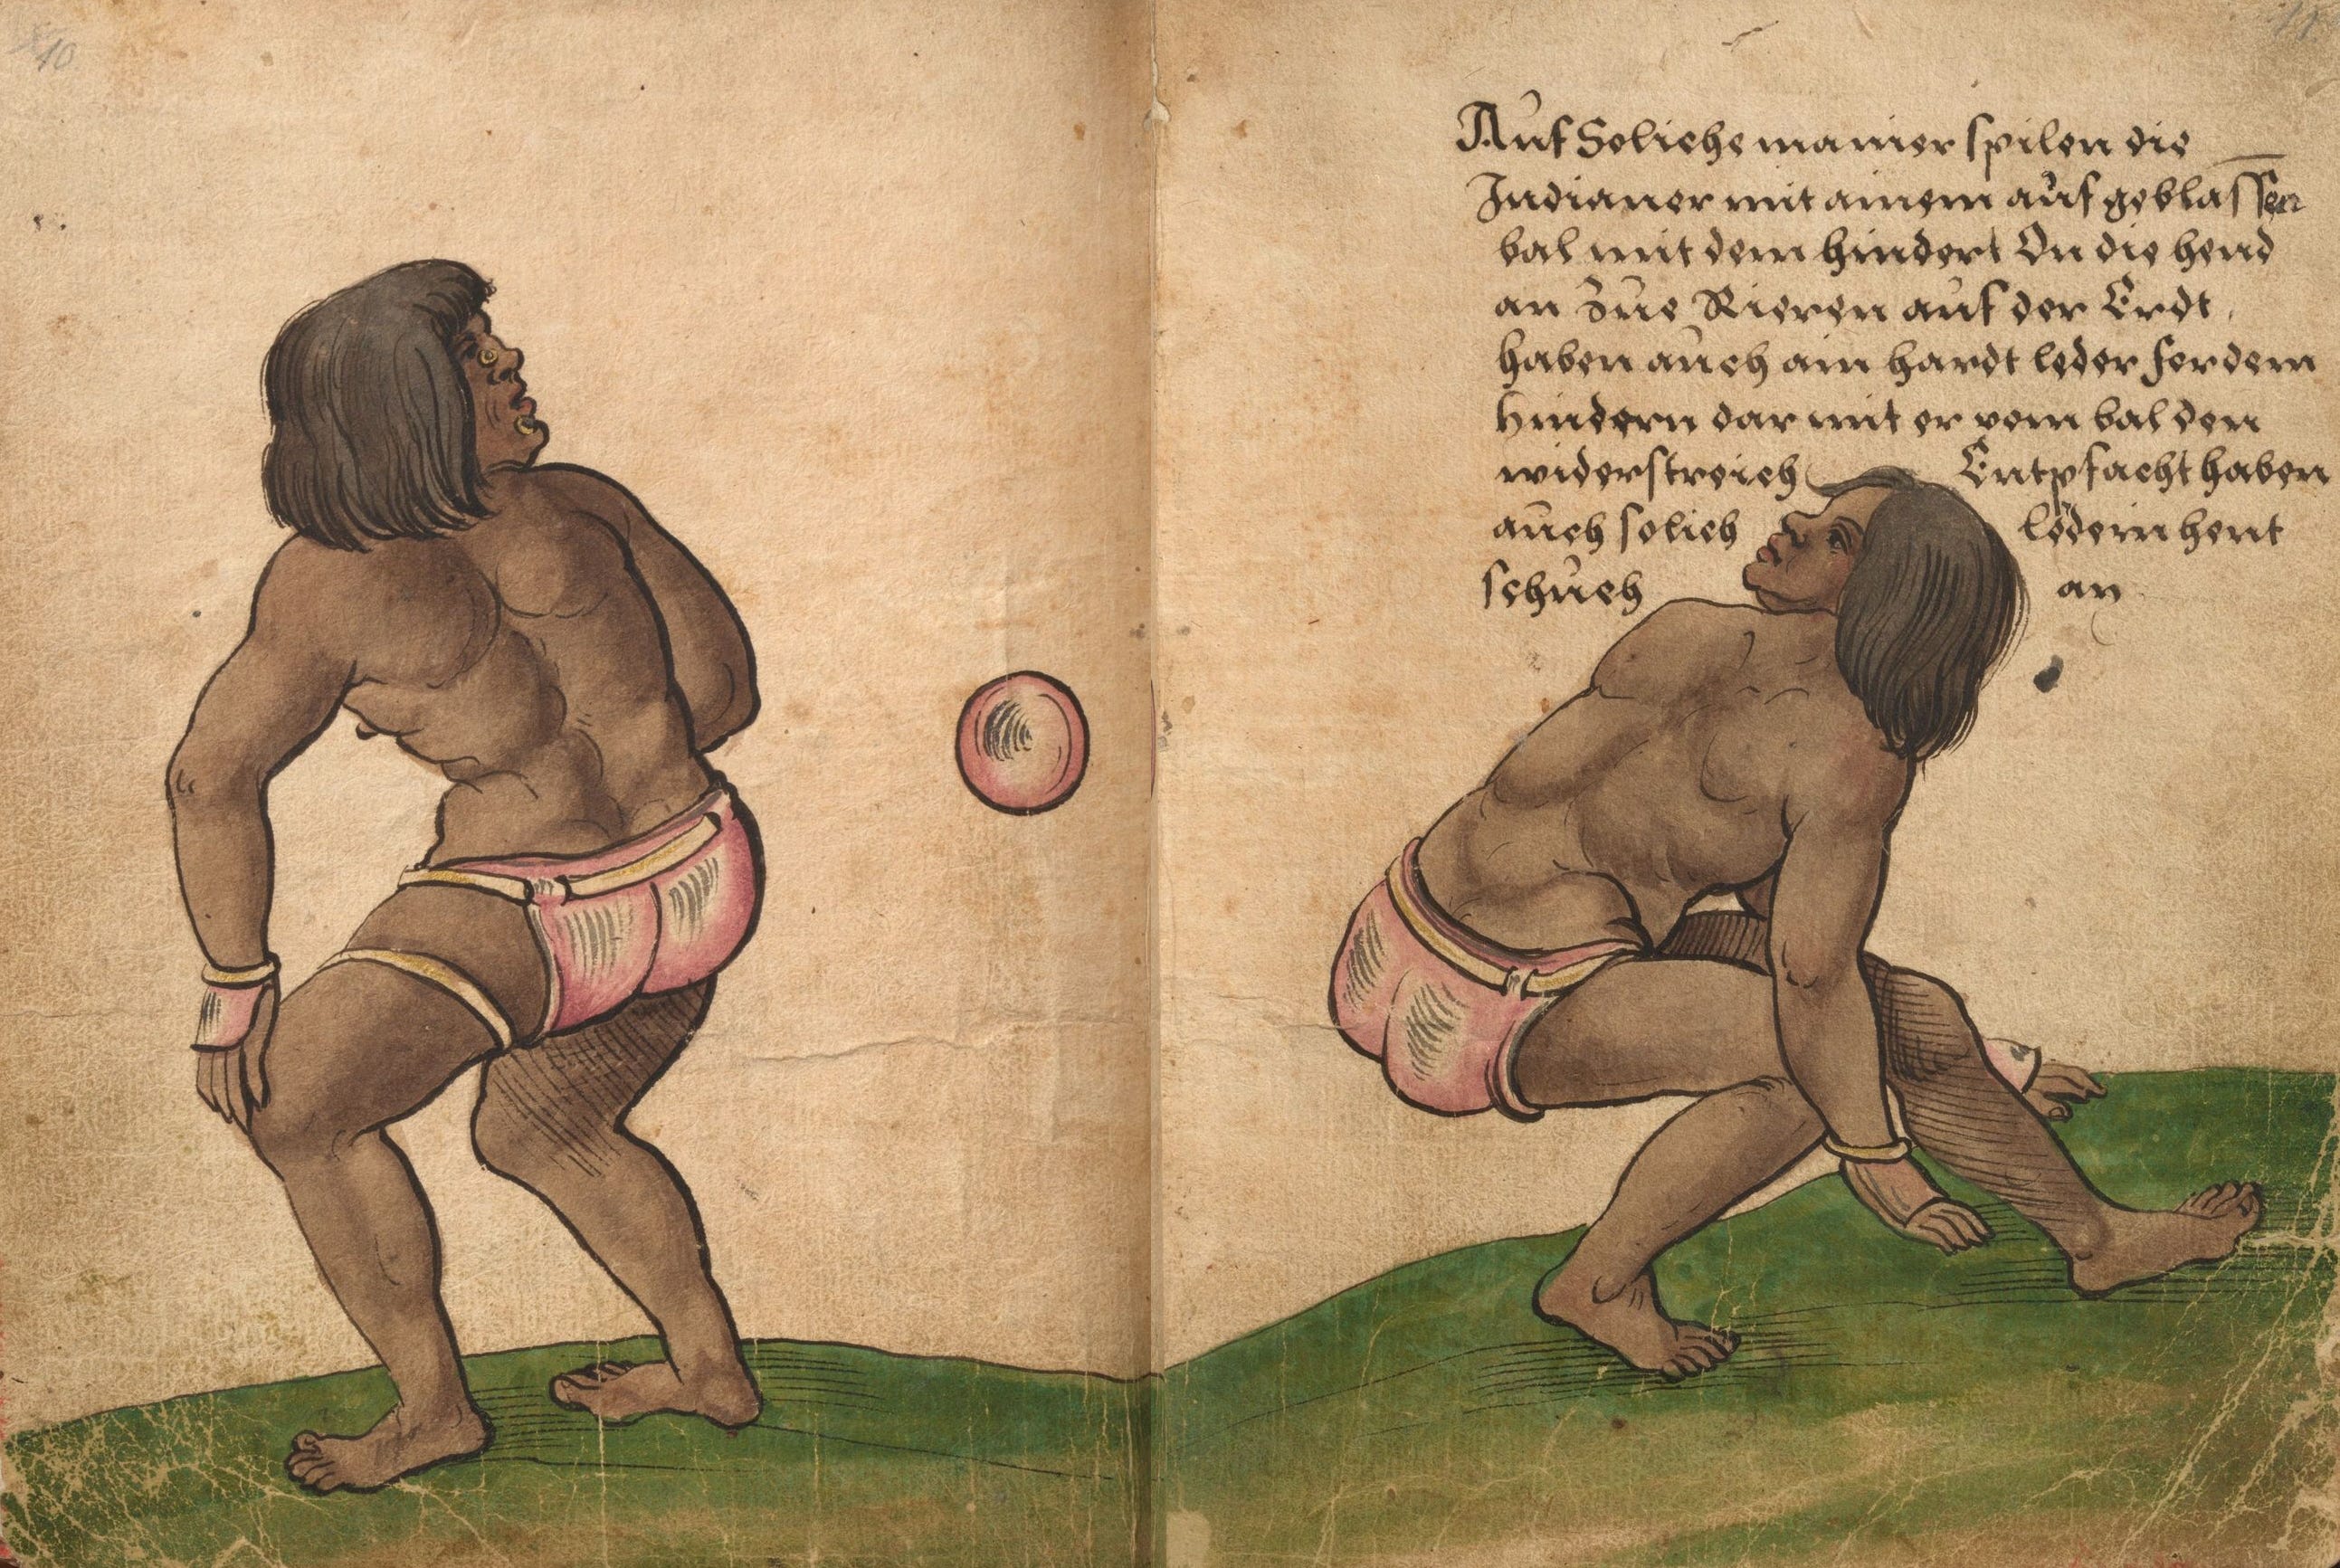 10
11
Auf Soliche manier spilen die
Indianer mit ainem aůf geblassen
bal mit dem hindert On die hend
an Zůe Rieren auf der Erdt
haben aůch ain hardt leder for dem
hindern dar mit er vom bal den
widerstreich Entpfacht haben
aůch solich ledern hent
schůch an